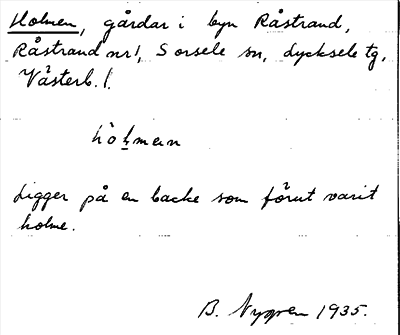 Holmen, gårdar i byn Råstrand,
Råstrand nr 1, Sorsele sn, Lycksele tg,
Västerb. l.
hòlmen
Ligger på en backe som förut varit
holme.
B. Nygren 1935.